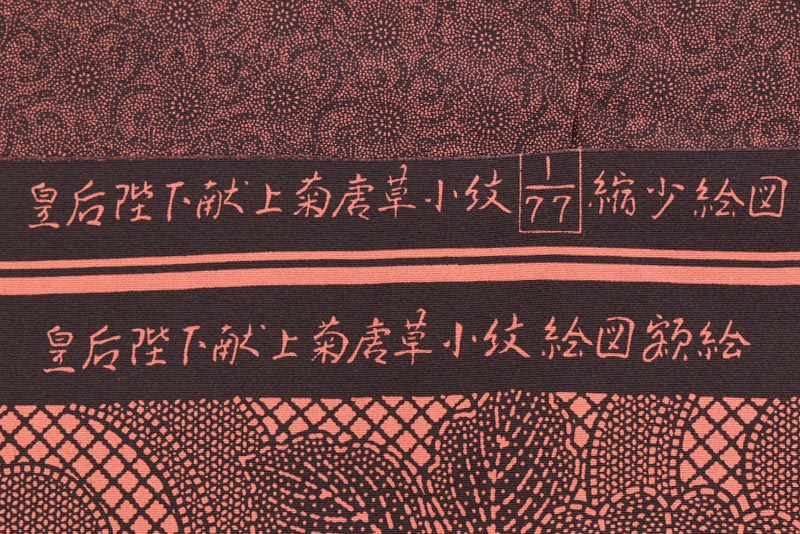 皇后陛下献上菊唐草小紋 1/77 縮少絵図
皇后陛下献上菊唐草小紋絵図額絵